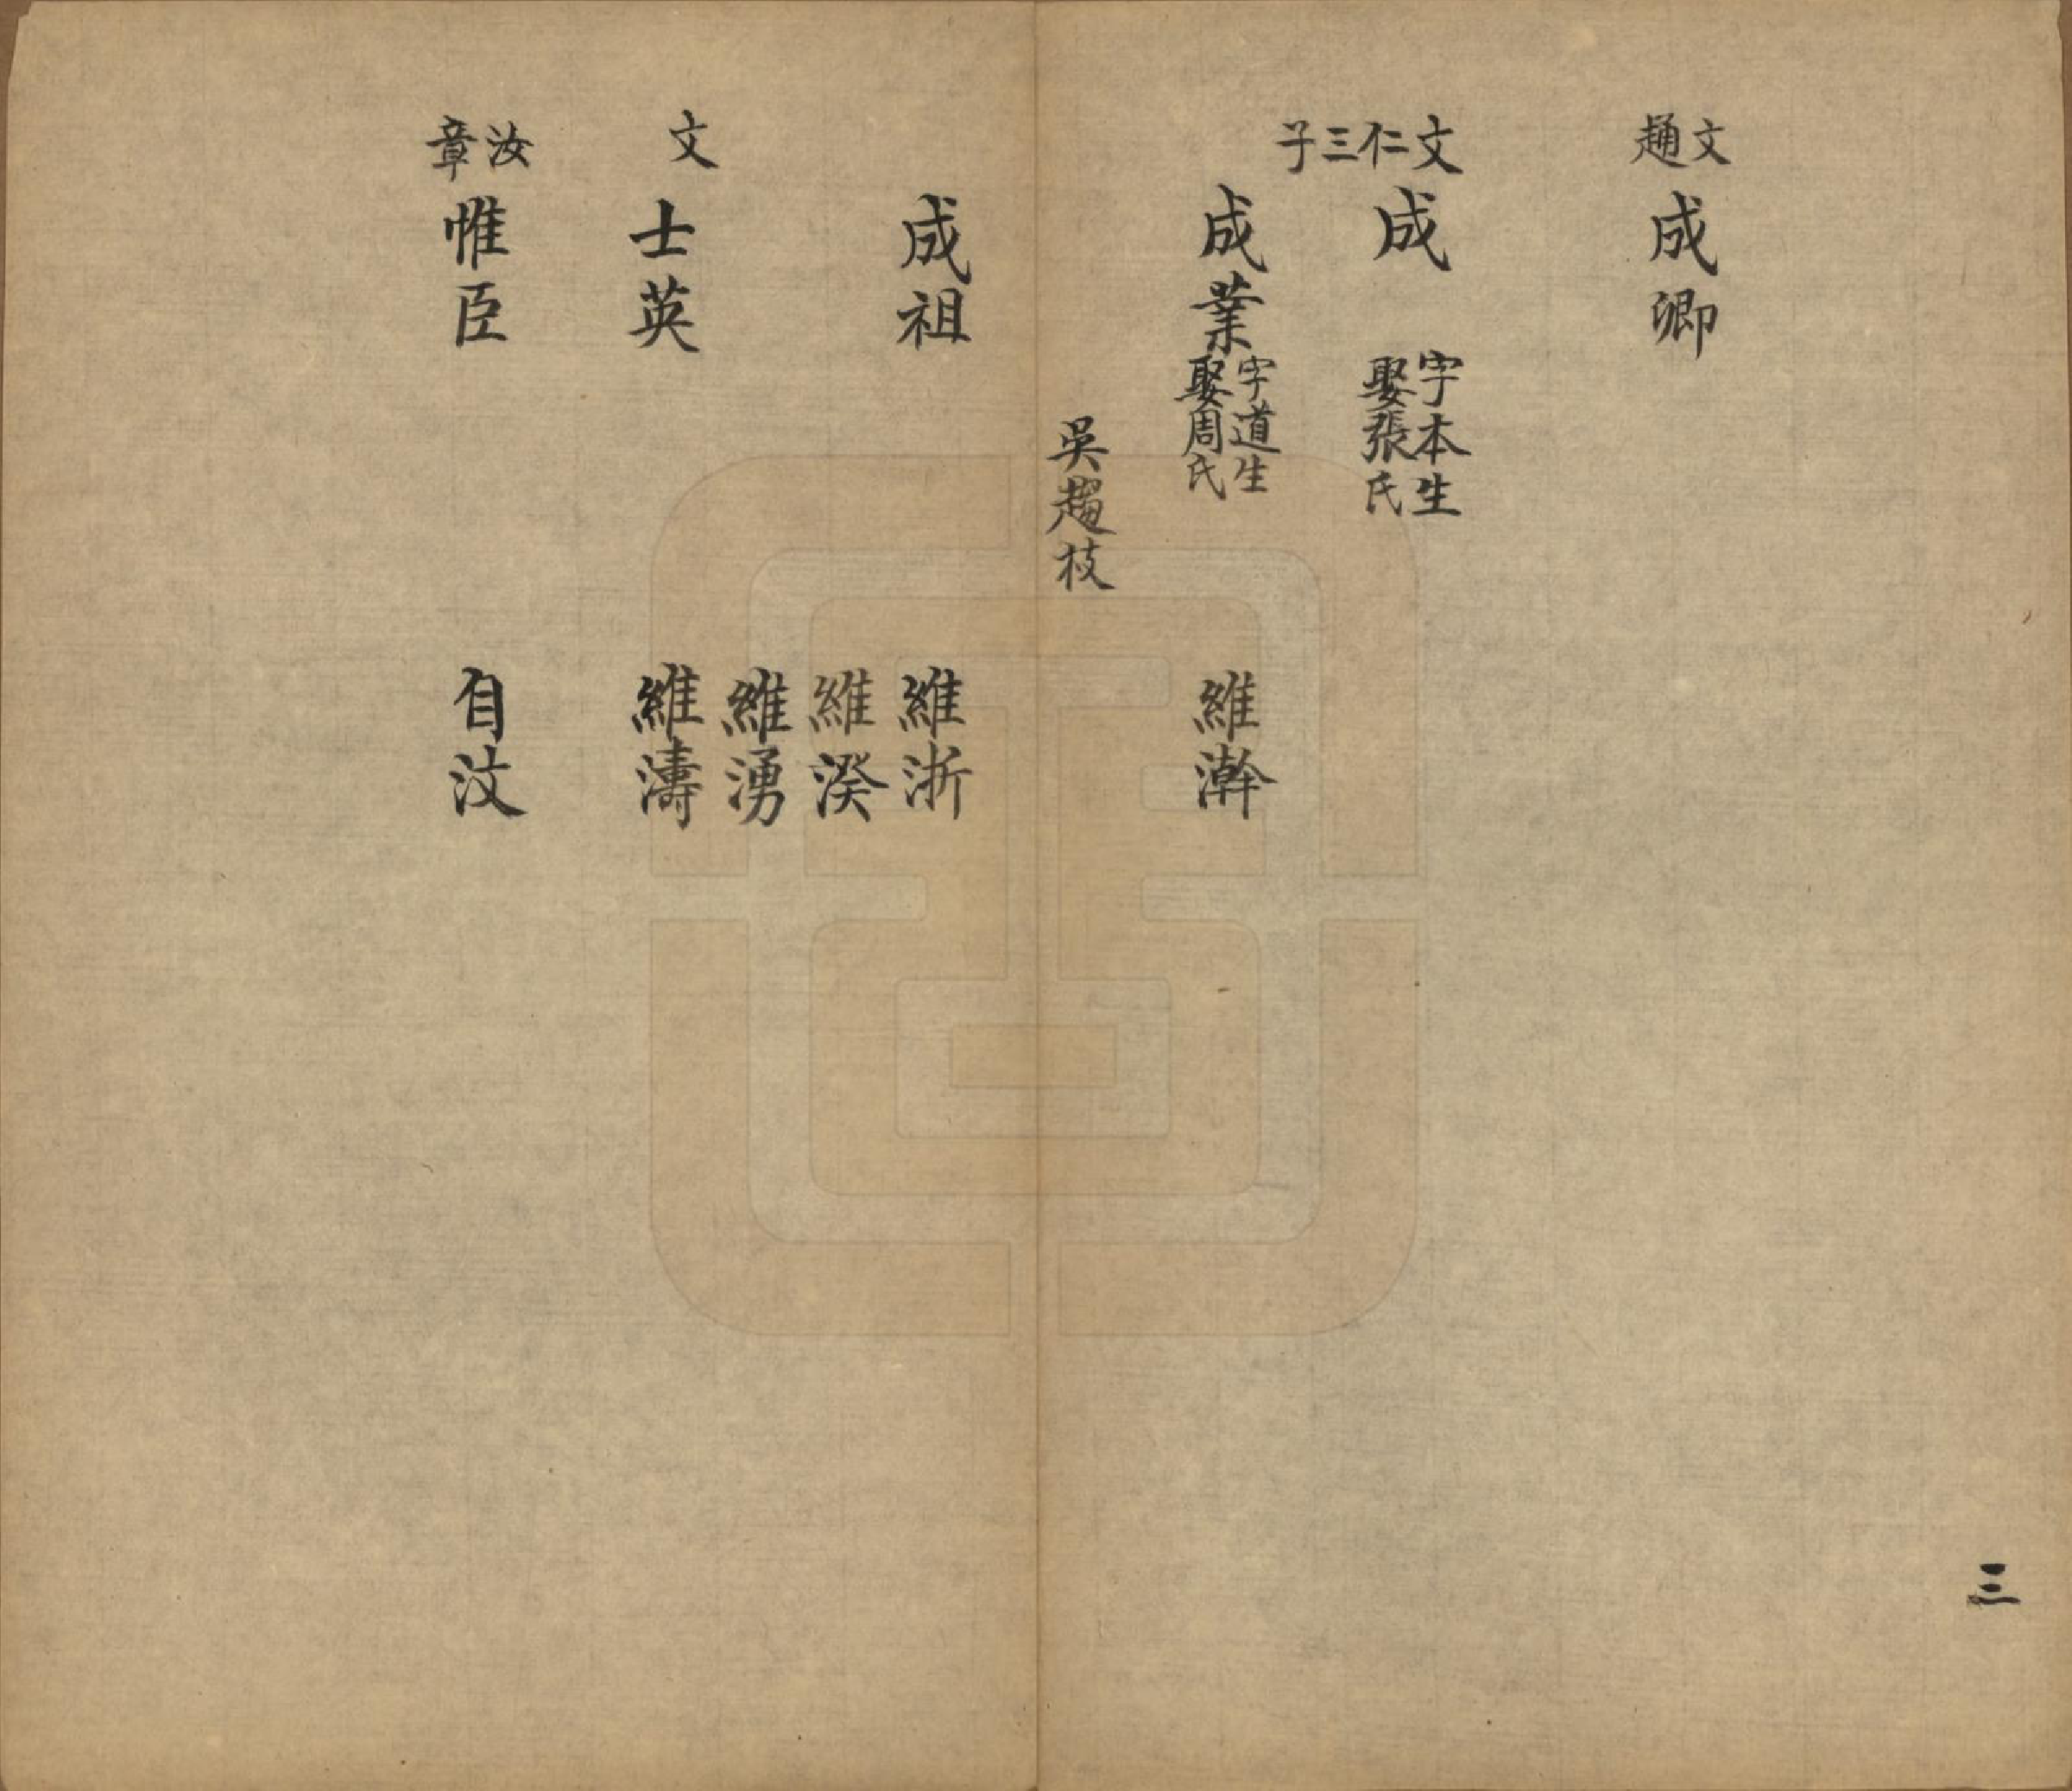 文
通
成卿
文仁三子
成
字本生
娶張氏
成業
字道生
娶周氏
維澣
吳趨枝
成祖
維浙
維湀
維湧
文
士英
維濤
汝章
惟臣
自汶
三